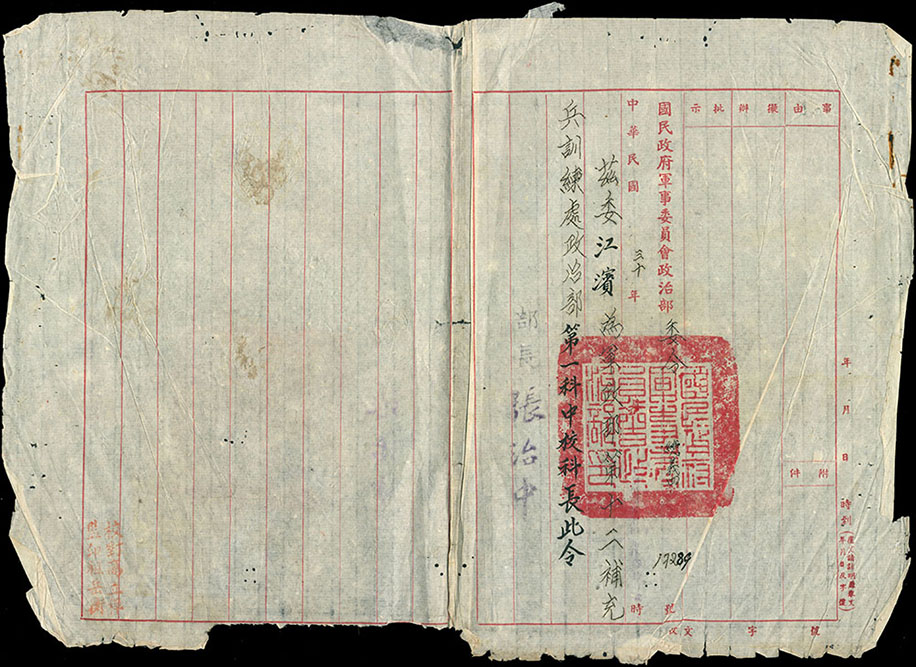 年月日時到
事由
擬辦
批示
附件
收文字號
國民政府軍事委員會政治部委令 17289 號
中華民國三十年 時
茲委江濱為軍政部第十補充
兵訓練處政治部第一科中校科長此令
部長張治中
校對
監印